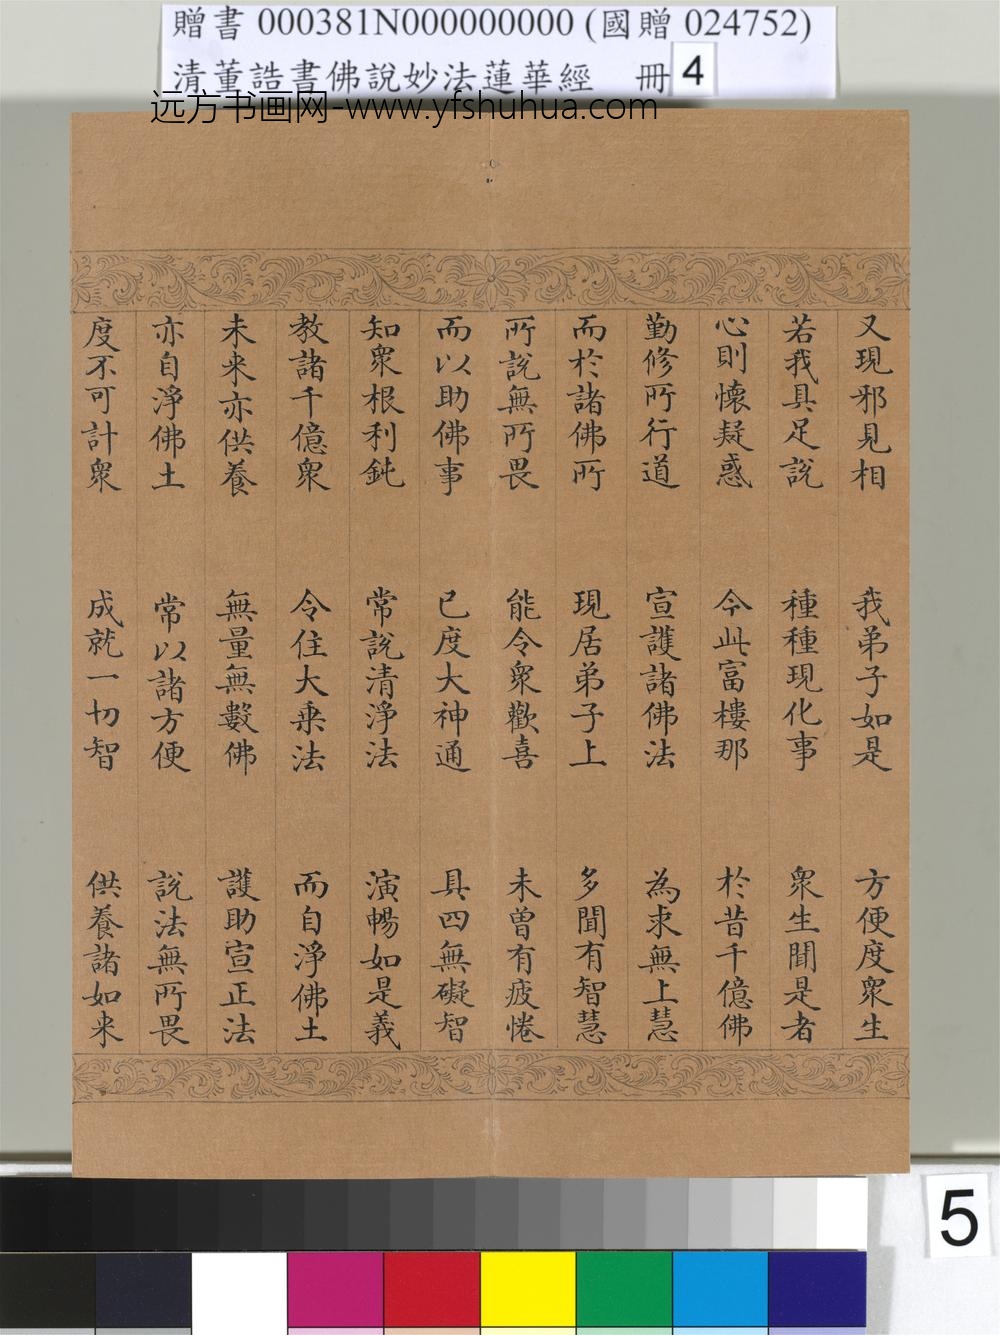 贈書 000381N000000000 (國贈 024752)
清董誥書佛說妙法蓮華經 冊 4
远方书画网-www.yfshuhua.com
又現邪見相 我弟子如是 方便度眾生
若我具足說 種種現化事 眾生聞是者
心則懷疑惑 今此富樓那 於昔千億佛
勤修所行道 宣護諸佛法 為求無上慧
而於諸佛所 現居弟子上 多聞有智慧
所說無所畏 能令眾歡喜 未曾有疲惓
而以助佛事 已度大神通 具四無礙智
知眾根利鈍 常說清淨法 演暢如是義
教諸千億眾 令住大乘法 而自淨佛土
未来亦供養 無量無數佛 護助宣正法
亦自淨佛土 常以諸方便 說法無所畏
度不可計眾 成就一切智 供養諸如来
5